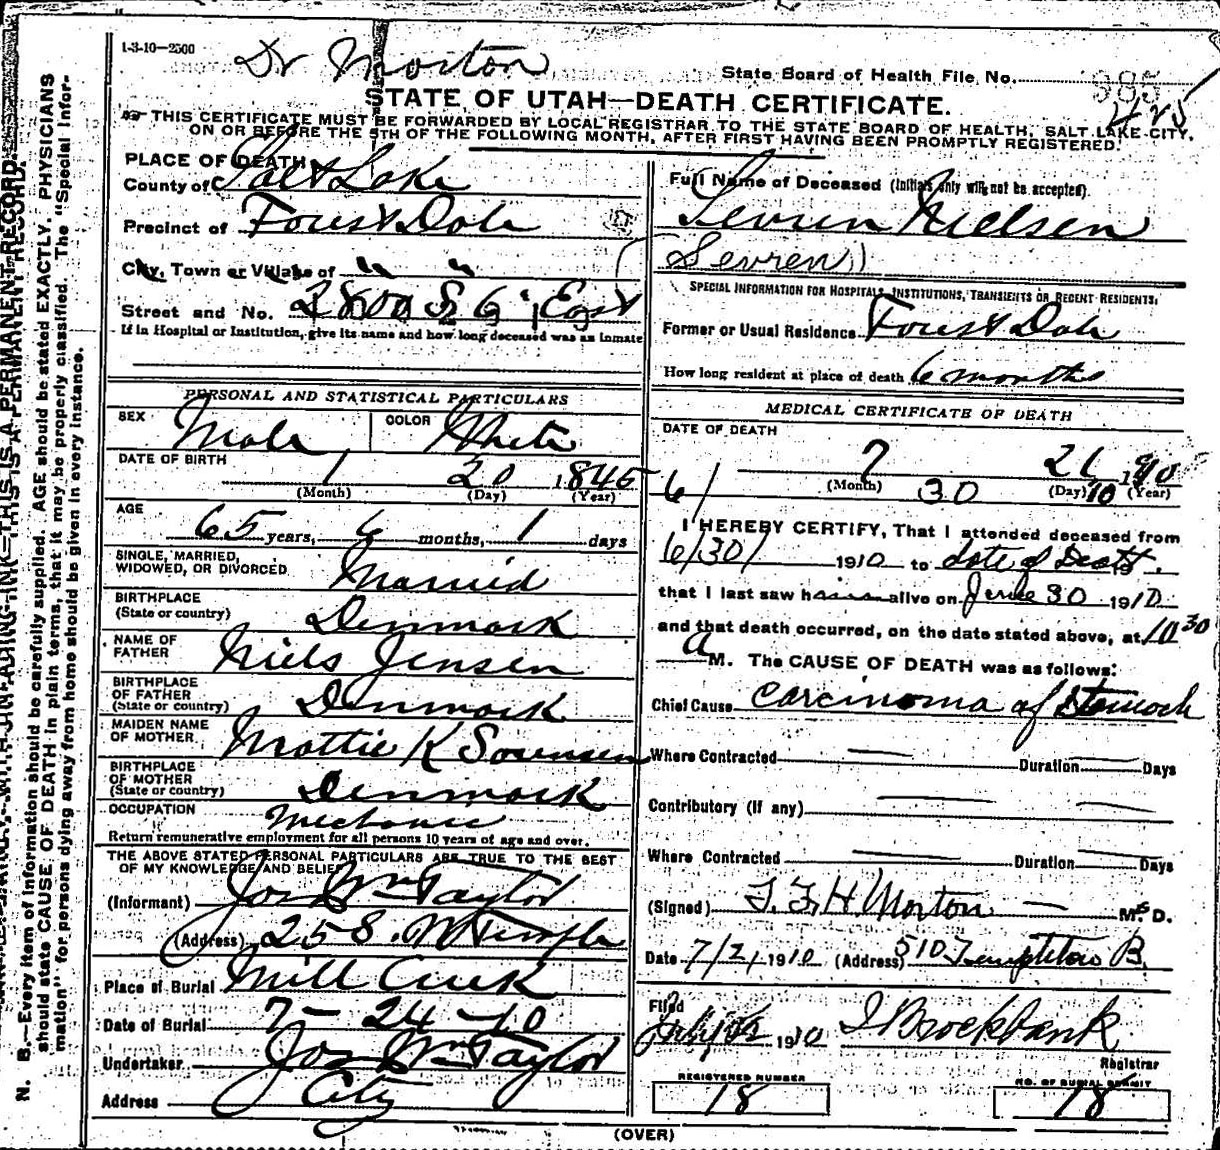 1-3-10-2500
Dr Morton
State Board of Health File No. 385
425
STATE OF UTAH—DEATH CERTIFICATE.
THIS CERTIFICATE MUST BE FORWARDED BY LOCAL REGISTRAR TO THE STATE BOARD OF HEALTH, SALT LAKE CITY,
ON OR BEFORE THE 5TH OF THE FOLLOWING MONTH, AFTER FIRST HAVING BEEN PROMPTLY REGISTERED.
PLACE OF DEATH
County of Salt Lake
Precinct of Forest Dale
City, Town or Village of " "
Street and No. 2800 S 6 East
If in Hospital or Institution, give its name and how long deceased was an inmate
PERSONAL AND STATISTICAL PARTICULARS
SEX Male COLOR White
DATE OF BIRTH
1 20 1845
(Month) (Day) (Year)
AGE
65 years, 6 months, 1 days
SINGLE, MARRIED,
WIDOWED, OR DIVORCED Married
BIRTHPLACE
(State or country) Denmark
NAME OF
FATHER Niels Jensen
BIRTHPLACE
OF FATHER
(State or country) Denmark
MAIDEN NAME
OF MOTHER Mattie K Sorensen
BIRTHPLACE
OF MOTHER
(State or country) Denmark
OCCUPATION Mechanic
Return remunerative employment for all persons 10 years of age and over.
THE ABOVE STATED PERSONAL PARTICULARS ARE TRUE TO THE BEST
OF MY KNOWLEDGE AND BELIEF
(Informant) Jos Wm Taylor
(Address) 25 S. W Temple
Place of Burial Mill Creek
Date of Burial 7-24-10
Undertaker Jos Wm Taylor
Address City
Full Name of Deceased (Initials only will not be accepted).
Sevren Nielsen
(Sevren)
SPECIAL INFORMATION FOR HOSPITALS, INSTITUTIONS, TRANSIENTS OR RECENT RESIDENTS.
Former or Usual Residence Forest Dale
How long resident at place of death 6 months
MEDICAL CERTIFICATE OF DEATH
DATE OF DEATH
7 21 1910
(Month) (Day) (Year)
6/ 30 10
I HEREBY CERTIFY, That I attended deceased from
6/30/ 1910 to date of Death 19 .
that I last saw him alive on June 30 1910
and that death occurred, on the date stated above, at 10 30
a M. The CAUSE OF DEATH was as follows:
Chief Cause carcinoma of Stomach
Where Contracted — Duration — Days
Contributory (if any) — —
Where Contracted — Duration — Days
(Signed) F. F. H Morton — M. D.
Date 7/21 1910 (Address) 510 Templeton B.
Filed
1910 I Brockbank
Registrar
REGISTERED NUMBER
18
NO. OF BURIAL PERMIT
18
(OVER)
N. B.—Every item of information should be carefully supplied. AGE should be stated EXACTLY. PHYSICIANS
should state CAUSE OF DEATH in plain terms, that it may be properly classified. The "Special Infor-
mation" for persons dying away from home should be given in every instance.
THIS IS A PERMANENT RECORD.